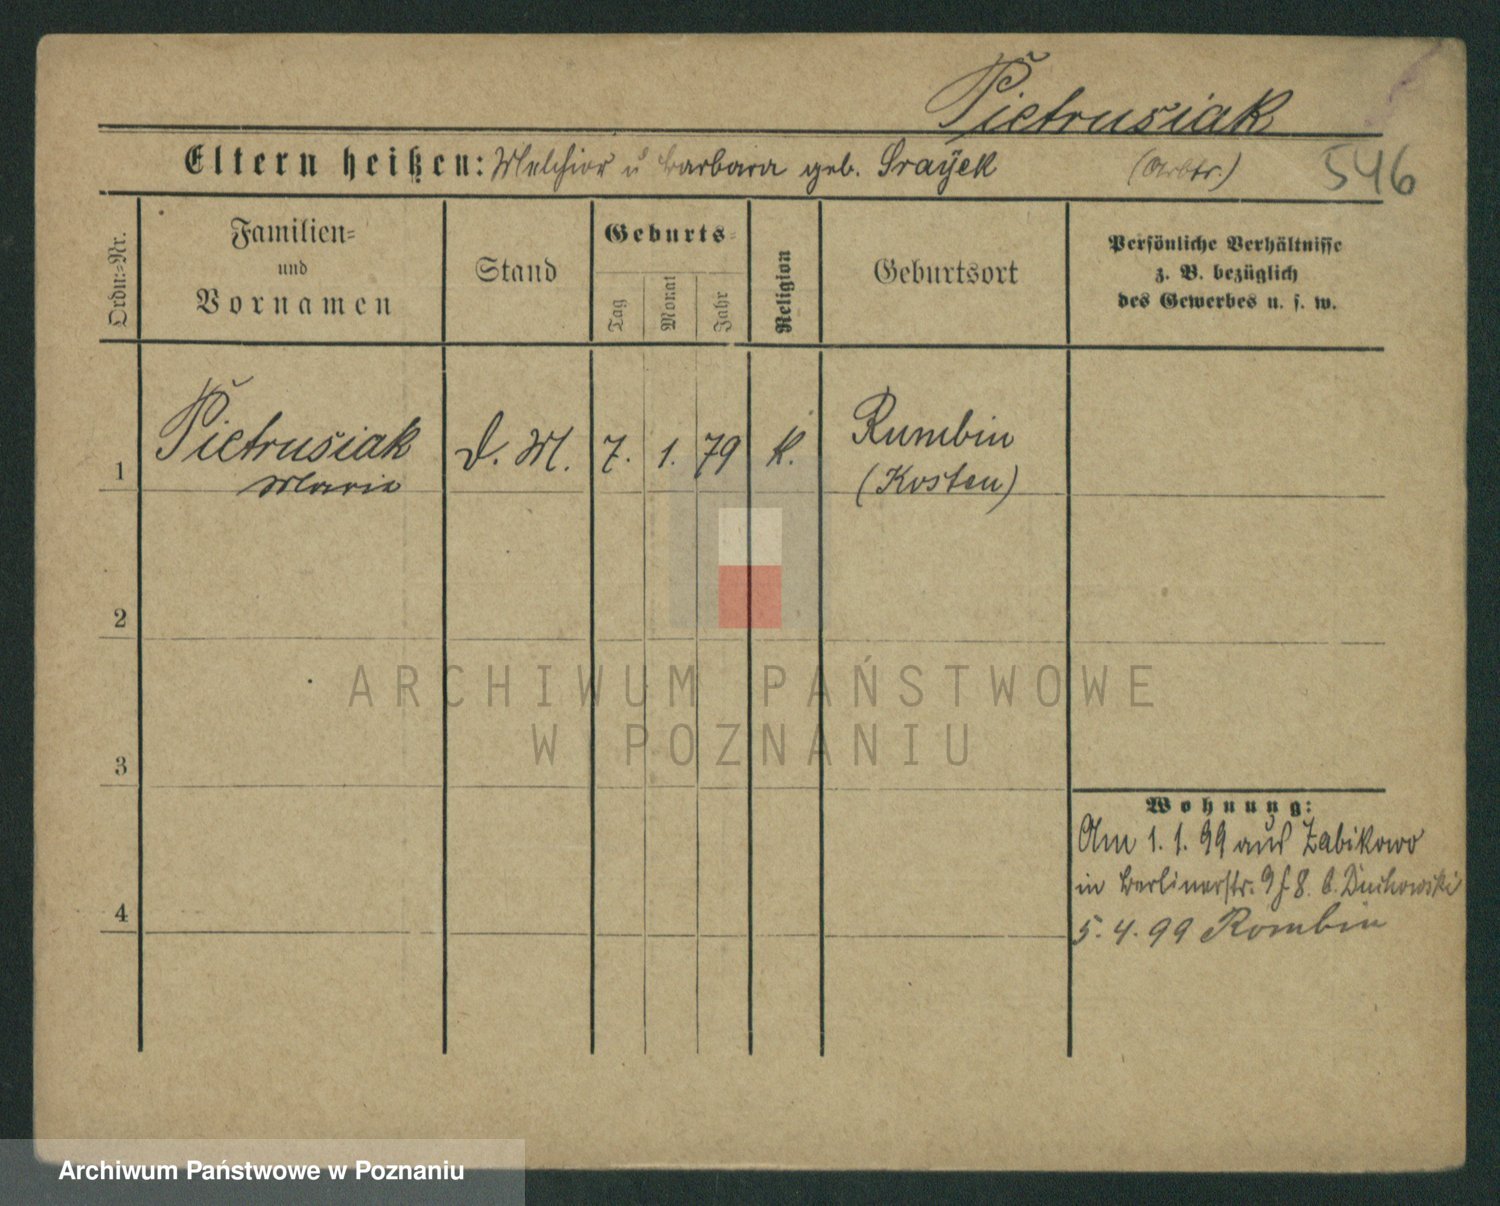 Pietrusiak
Eltern heißen: Melchior u Barbara geb. Srayek (Arbtr.) 546
Ordn.=Nr.
Familien=
und
Vornamen
Stand
Geburts=
Tag
Monat
Jahr
Religion
Geburtsort
Persönliche Verhältnisse
z. B. bezüglich
des Gewerbes u. s. w.
1 Pietrusiak D. M. 7. 1. 79 K. Rumbin
Marie (Kosten)
2
3
4
Wohnung:
Am 1. 1. 99 aus Zabikowo
in Berlinerstr. 9 8. b. Duchowski
5. 4. 99 Rombin
ARCHIWUM PAŃSTWOWE
W POZNANIU
Archiwum Państwowe w Poznaniu